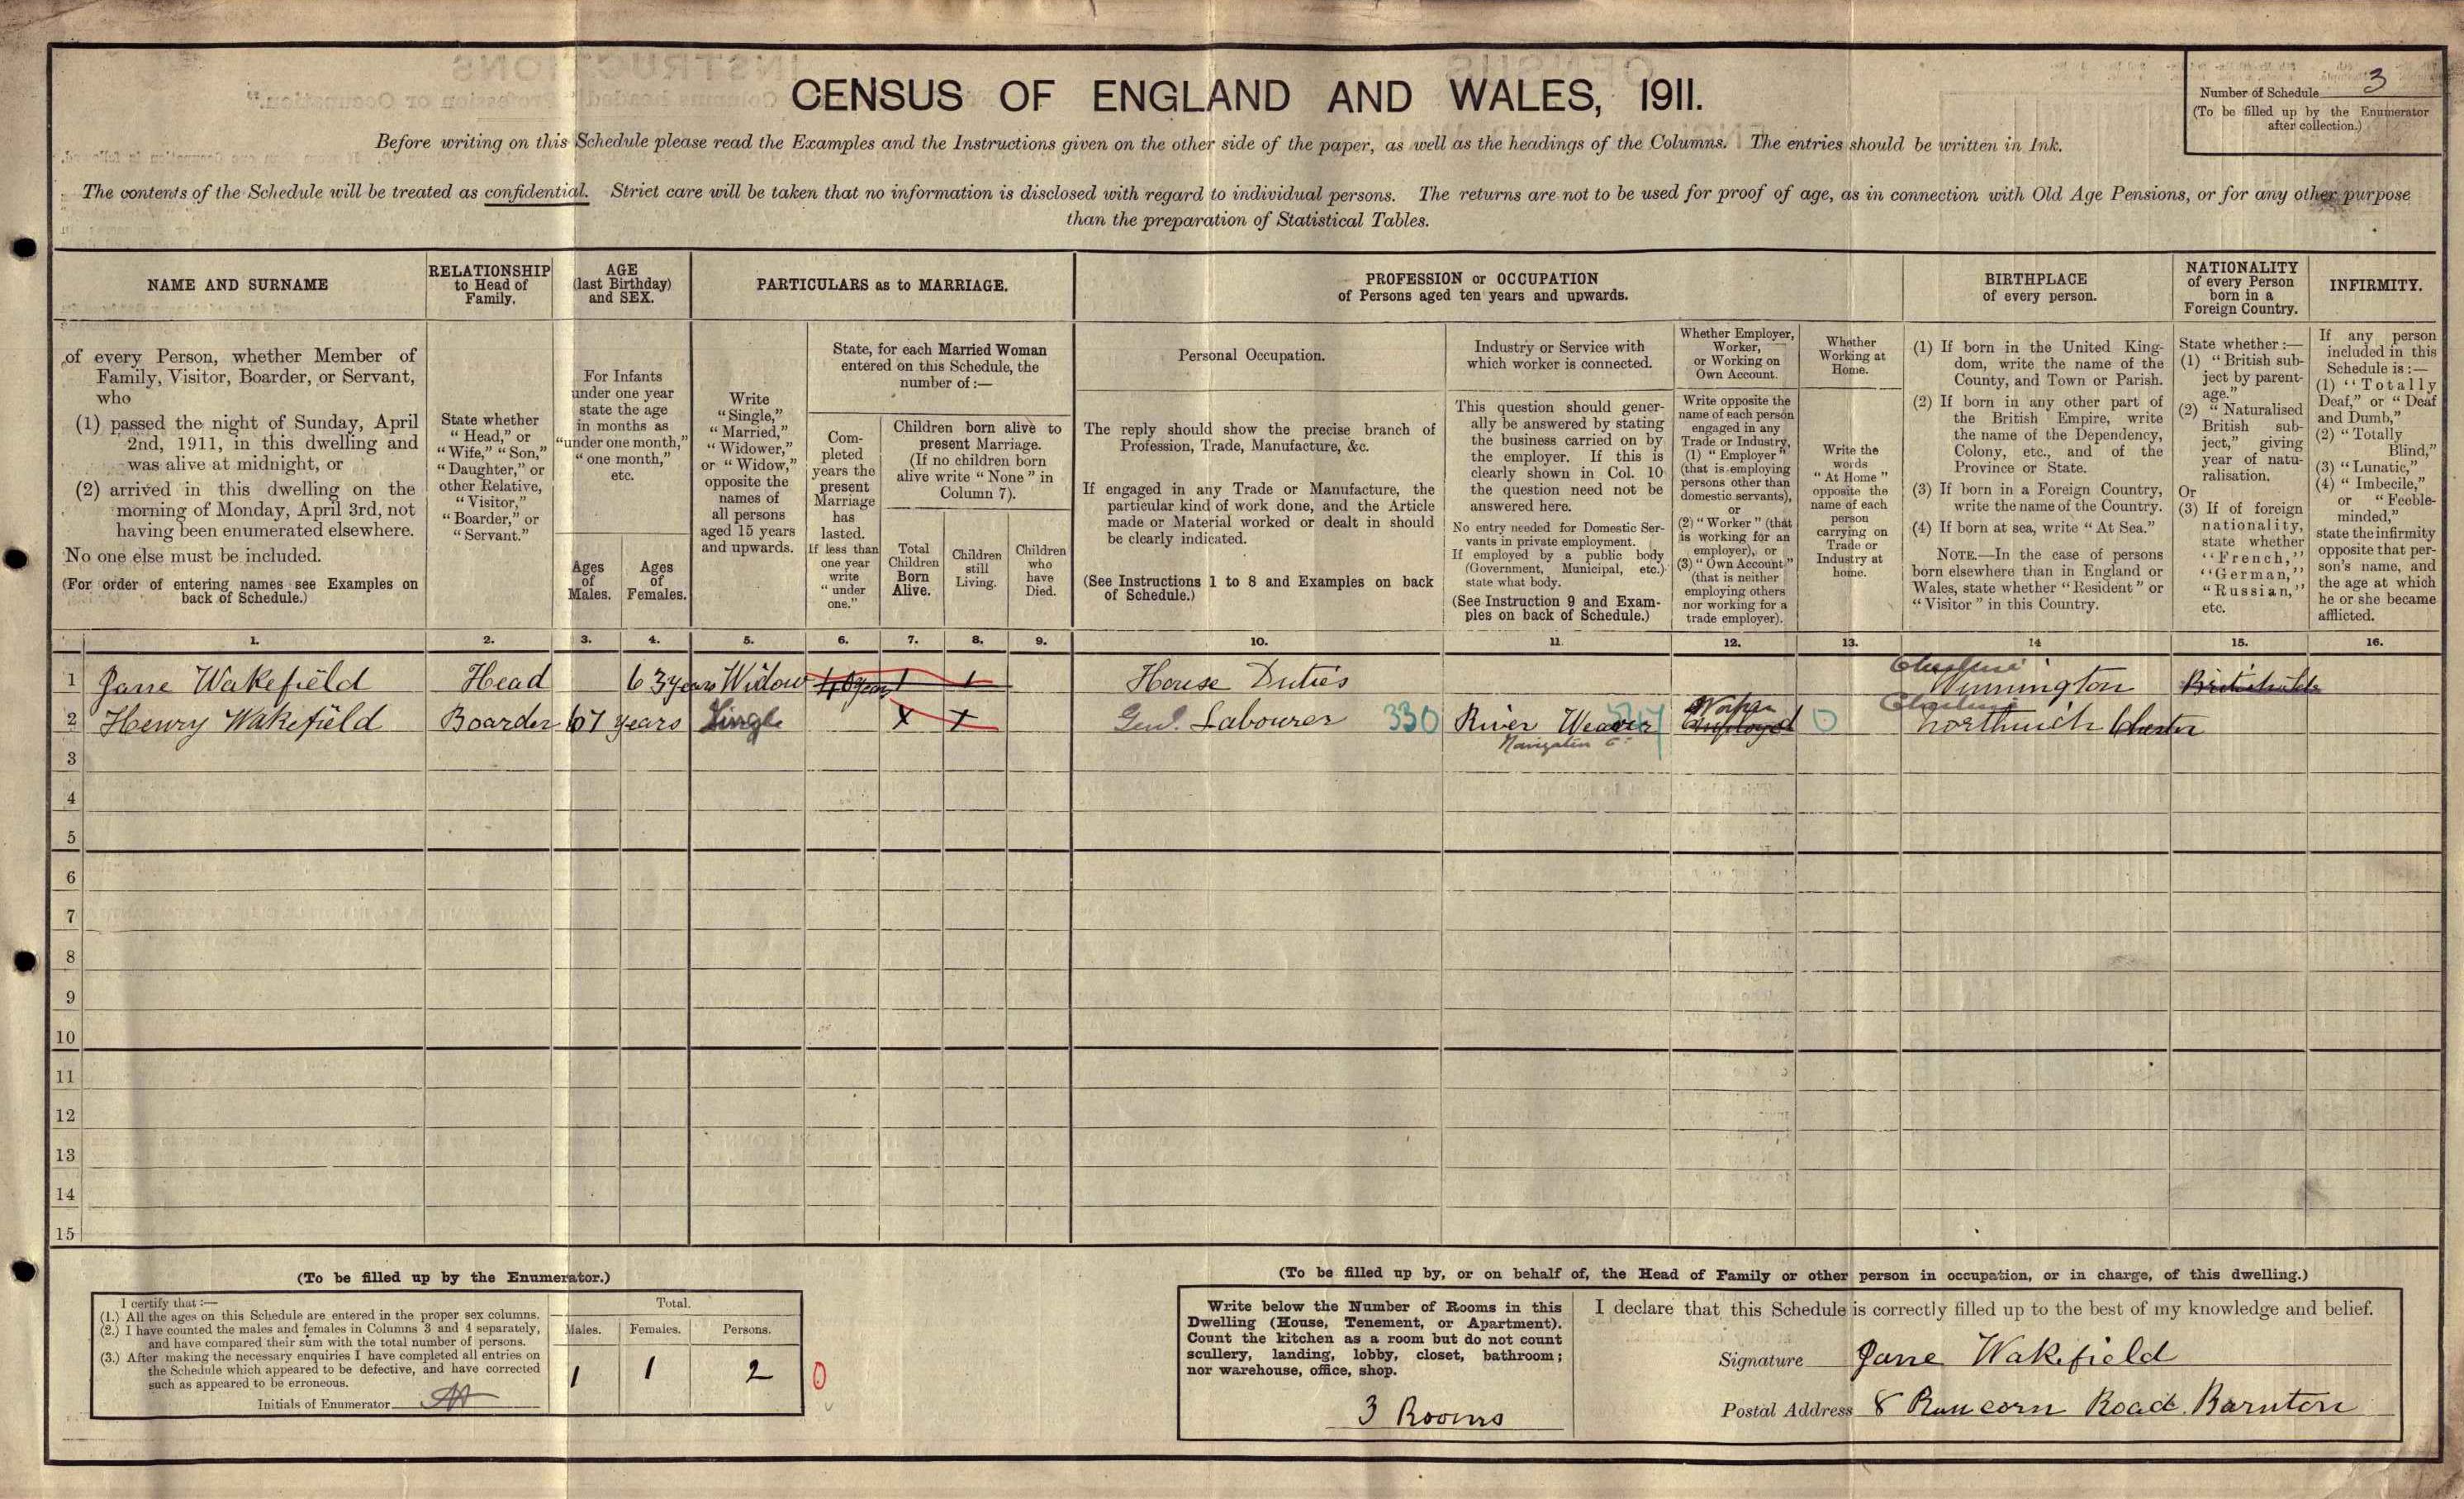 CENSUS OF ENGLAND AND WALES, 1911.
Number of Schedule 3
(To be filled up by the Enumerator
after collection.)
Before writing on this Schedule please read the Examples and the Instructions given on the other side of the paper, as well as the headings of the Columns. The entries should be written in Ink.
The contents of the Schedule will be treated as confidential. Strict care will be taken that no information is disclosed with regard to individual persons. The returns are not to be used for proof of age, as in connection with Old Age Pensions, or for any other purpose
than the preparation of Statistical Tables.
NAME AND SURNAME
RELATIONSHIP
to Head of
Family.
AGE
(last Birthday)
and SEX.
PARTICULARS as to MARRIAGE.
PROFESSION or OCCUPATION
of Persons aged ten years and upwards.
BIRTHPLACE
of every person.
NATIONALITY
of every Person
born in a
Foreign Country.
INFIRMITY.
of every Person, whether Member of
Family, Visitor, Boarder, or Servant,
who
(1) passed the night of Sunday, April
2nd, 1911, in this dwelling and
was alive at midnight, or
(2) arrived in this dwelling on the
morning of Monday, April 3rd, not
having been enumerated elsewhere.
No one else must be included.
(For order of entering names see Examples on
back of Schedule.)
State whether
"Head," or
"Wife," "Son,"
"Daughter," or
other Relative,
"Visitor,"
"Boarder," or
"Servant."
For Infants
under one year
state the age
in months as
"under one month,"
"one month,"
etc.
Ages
of
Males.
Ages
of
Females.
Write
"Single,"
"Married,"
"Widower,"
or "Widow,"
opposite the
names of
all persons
aged 15 years
and upwards.
State, for each Married Woman
entered on this Schedule, the
number of:—
Com-
pleted
years the
present
Marriage
has
lasted.
If less than
one year
write
"under
one."
Children born alive to
present Marriage.
(If no children born
alive write "None" in
Column 7).
Total
Children
Born
Alive.
Children
still
Living.
Children
who
have
Died.
Personal Occupation.
The reply should show the precise branch of
Profession, Trade, Manufacture, &c.
If engaged in any Trade or Manufacture, the
particular kind of work done, and the Article
made or Material worked or dealt in should
be clearly indicated.
(See Instructions 1 to 8 and Examples on back
of Schedule.)
Industry or Service with
which worker is connected.
This question should gener-
ally be answered by stating
the business carried on by
the employer. If this is
clearly shown in Col. 10
the question need not be
answered here.
No entry needed for Domestic Ser-
vants in private employment.
If employed by a public body
(Government, Municipal, etc.)
state what body.
(See Instruction 9 and Exam-
ples on back of Schedule.)
Whether Employer,
Worker,
or Working on
Own Account.
Write opposite the
name of each person
engaged in any
Trade or Industry,
(1) "Employer"
(that is employing
persons other than
domestic servants),
or
(2) "Worker" (that
is working for an
employer), or
(3) "Own Account"
(that is neither
employing others
nor working for a
trade employer).
Whether
Working at
Home.
Write the
words
"At Home"
opposite the
name of each
person
carrying on
Trade or
Industry at
home.
(1) If born in the United King-
dom, write the name of the
County, and Town or Parish.
(2) If born in any other part of
the British Empire, write
the name of the Dependency,
Colony, etc., and of the
Province or State.
(3) If born in a Foreign Country,
write the name of the Country.
(4) If born at sea, write "At Sea."
NOTE.—In the case of persons
born elsewhere than in England or
Wales, state whether "Resident" or
"Visitor" in this Country.
State whether:—
(1) "British sub-
ject by parent-
age."
(2) "Naturalised
British sub-
ject," giving
year of natu-
ralisation.
Or
(3) If of foreign
nationality,
state whether
"French,"
"German,"
"Russian,"
etc.
If any person
included in this
Schedule is:—
(1) "Totally
Deaf," or "Deaf
and Dumb,"
(2) "Totally
Blind,"
(3) "Lunatic,"
(4) "Imbecile,"
or "Feeble-
minded,"
state the infirmity
opposite that per-
son's name, and
the age at which
he or she became
afflicted.
1. 2. 3. 4. 5. 6. 7. 8. 9. 10. 11. 12. 13. 14 15. 16.
Cheshire
1 Jane Wakefield Head 63 years Widow 40 years 1 1 House Duties Winnington
Worker Cheshire
2 Henry Wakefield Boarder 67 years Single X X Genl. Labourer 330 River Weaver Employed 0 Northwich Chester
Navigation Co.
3
4
5
6
7
8
9
10
11
12
13
14
15
(To be filled up by the Enumerator.)
I certify that:—
(1.) All the ages on this Schedule are entered in the proper sex columns.
(2.) I have counted the males and females in Columns 3 and 4 separately,
and have compared their sum with the total number of persons.
(3.) After making the necessary enquiries I have completed all entries on
the Schedule which appeared to be defective, and have corrected
such as appeared to be erroneous.
Initials of Enumerator
Total.
Males. Females. Persons.
1 1 2 0
(To be filled up by, or on behalf of, the Head of Family or other person in occupation, or in charge, of this dwelling.)
Write below the Number of Rooms in this
Dwelling (House, Tenement, or Apartment).
Count the kitchen as a room but do not count
scullery, landing, lobby, closet, bathroom;
nor warehouse, office, shop.
3 Rooms
I declare that this Schedule is correctly filled up to the best of my knowledge and belief.
Signature Jane Wakefield
Postal Address 8 Runcorn Road. Barnton